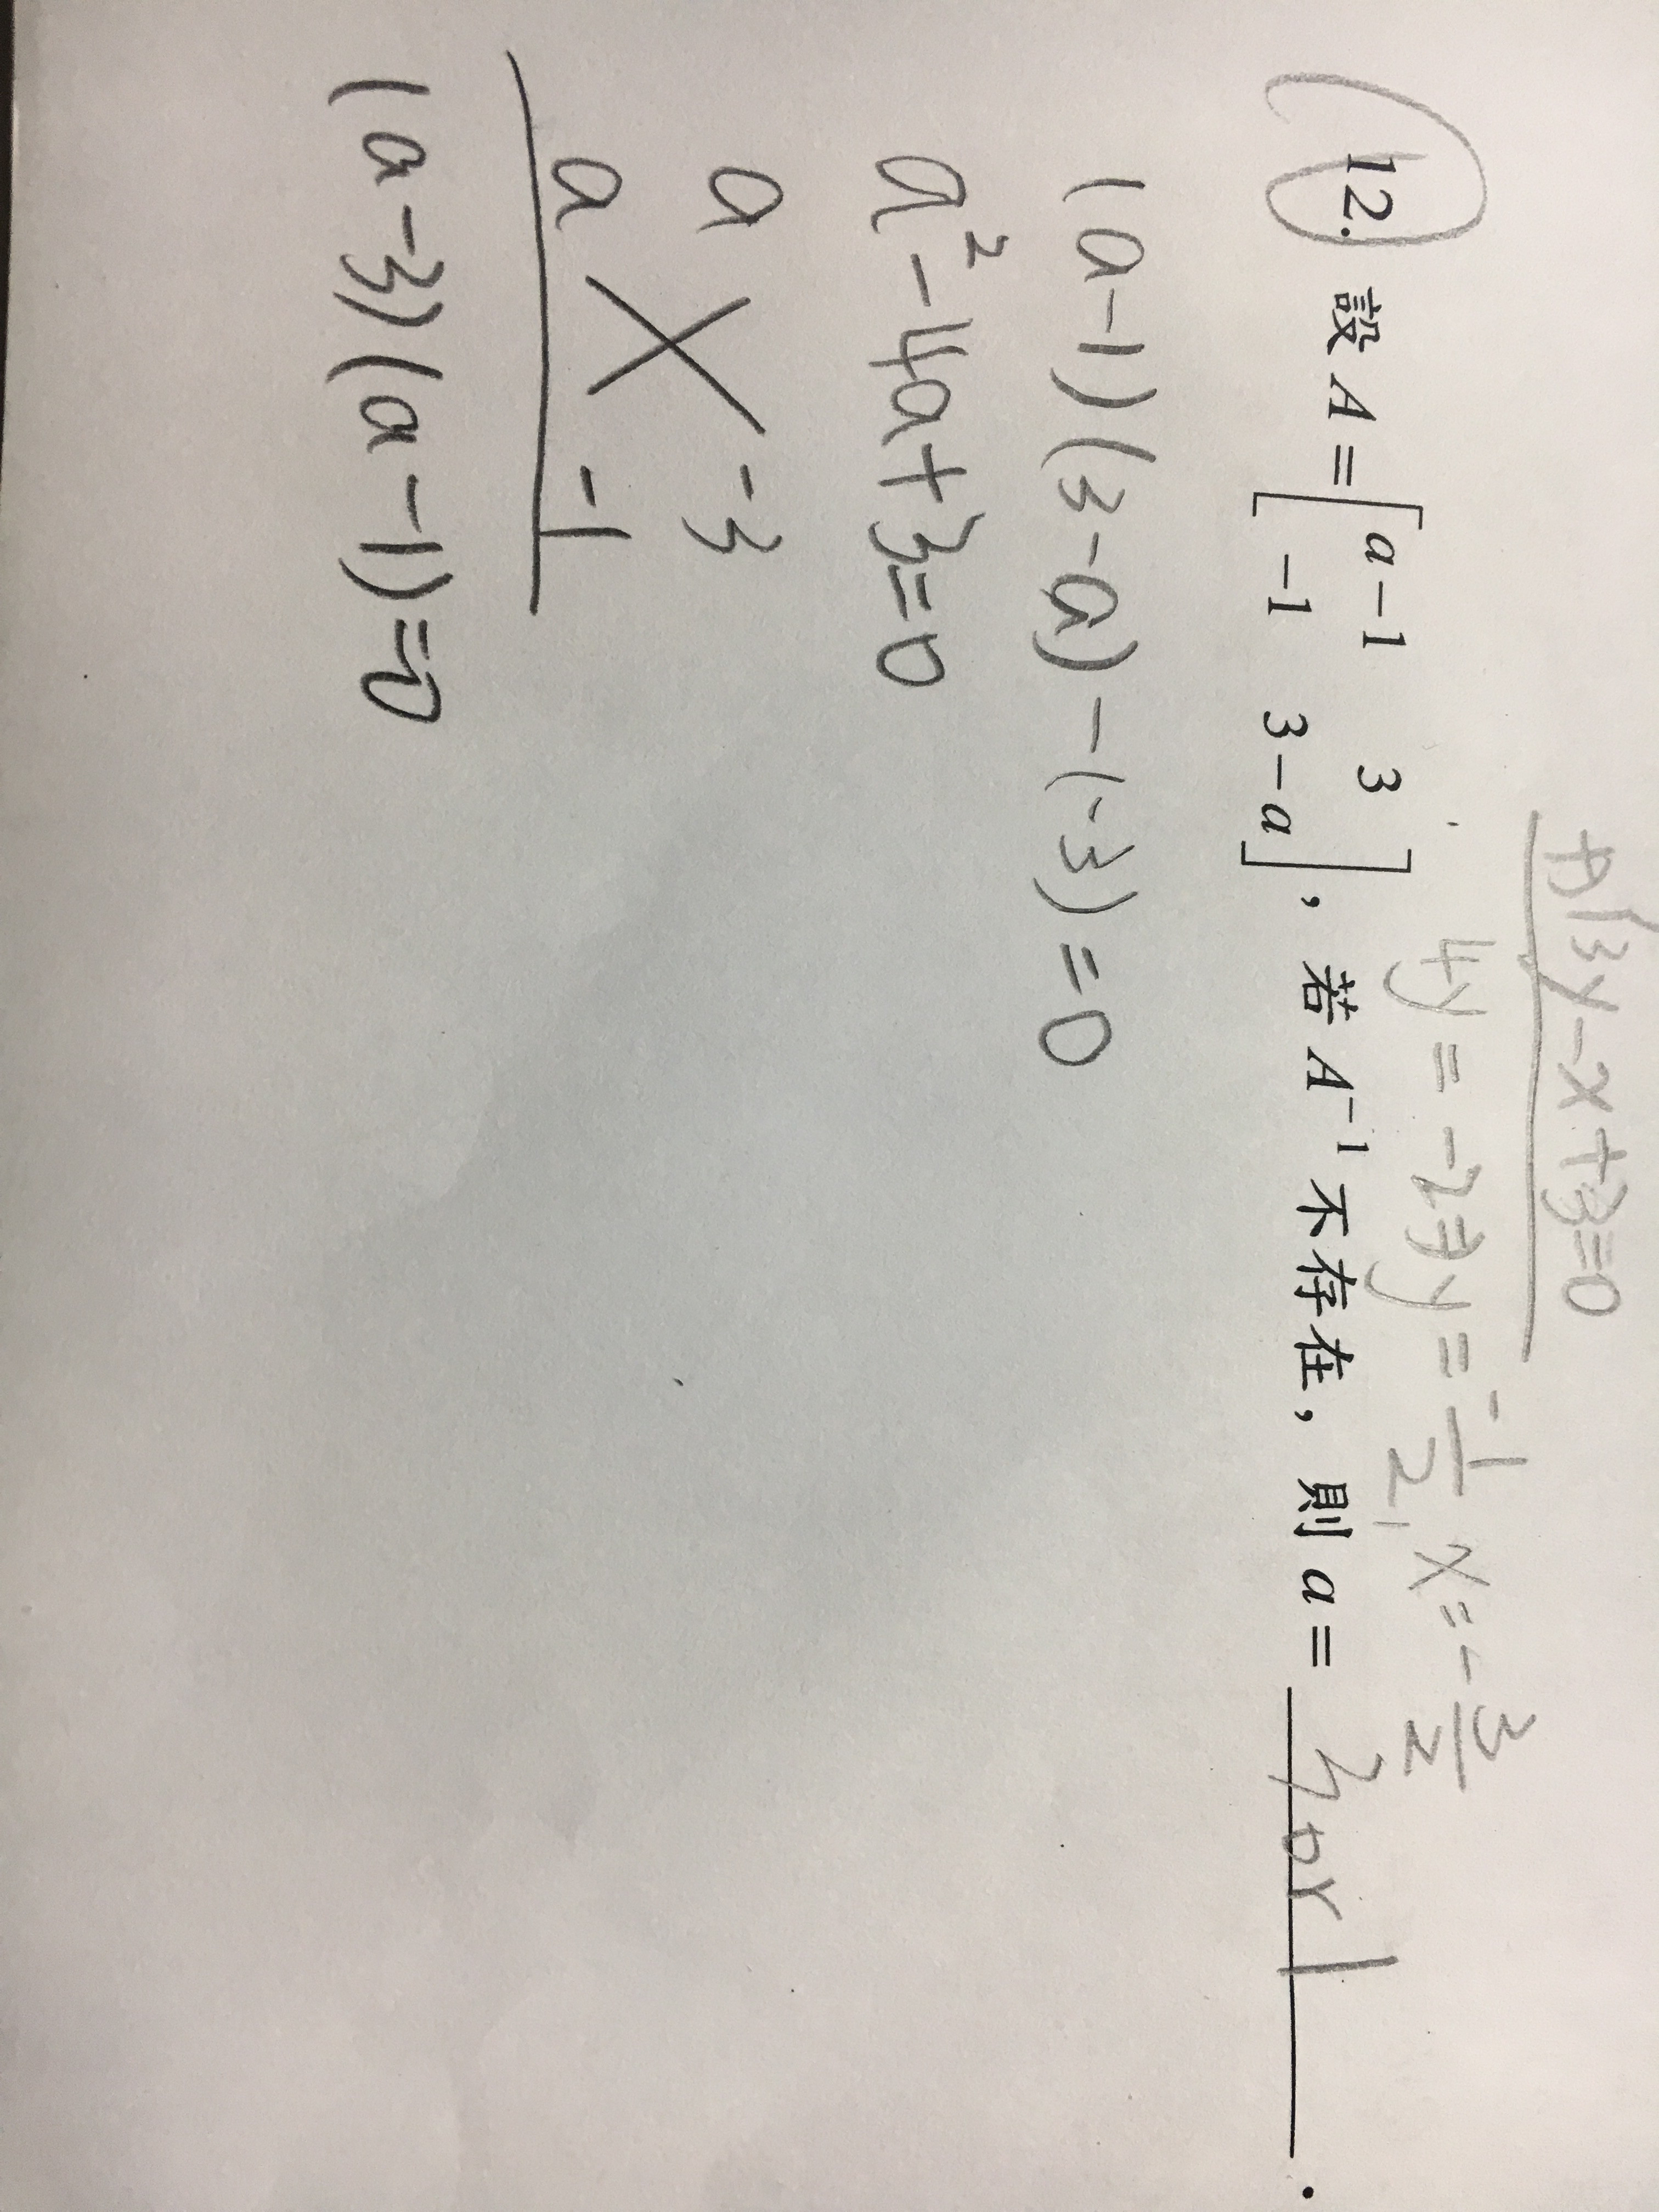 3y-x+3=0
4y=-2⇒y=-1/2, x=-3/2
12. 設 A = [a-1 3
-1 3-a], 若 A⁻¹ 不存在, 則 a = 3 or 1.
(a-1)(3-a)-(-3)=0
a²-4a+3=0
a -3
a -1
(a-3)(a-1)=0